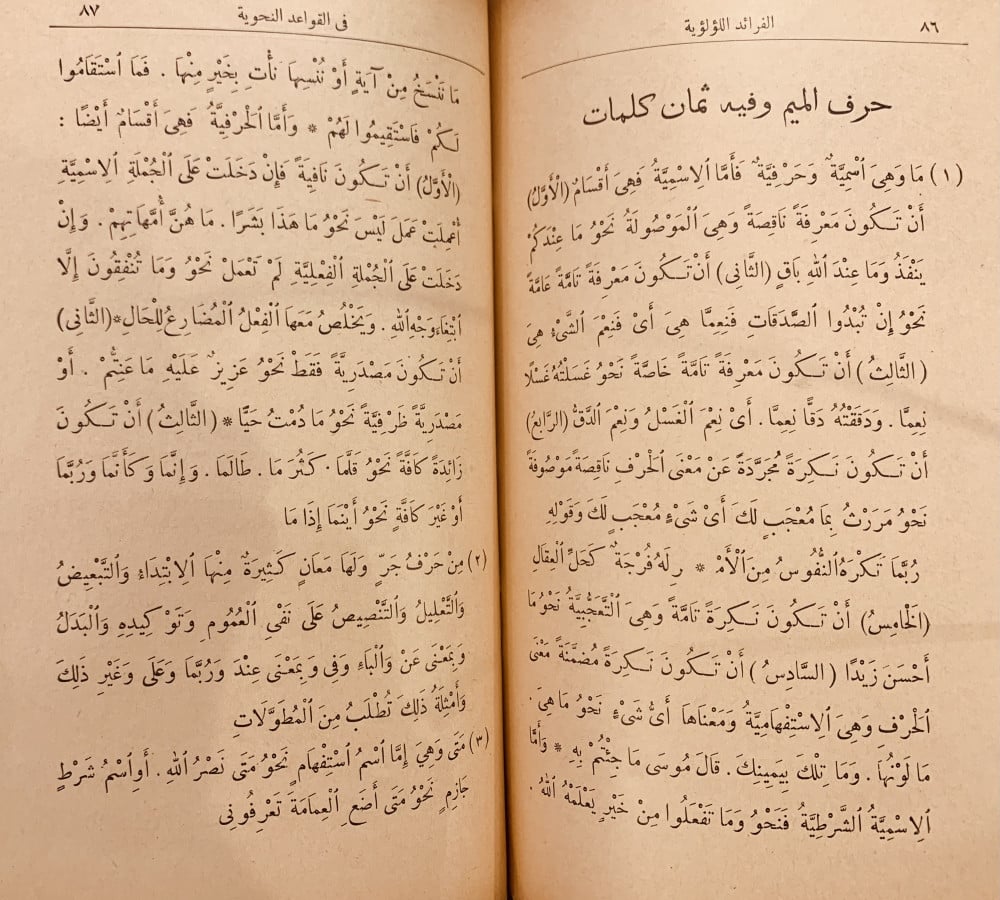 ٨٦ الفرائد اللؤلؤية
حرف الميم وفيه ثمان كلمات
(١) مَا وَهِىَ ٱسْمِيَّةٌ وَحَرْفِيَّةٌ فَأَمَّا ٱلِاسْمِيَّةُ فَهِىَ أَقْسَامٌ (الْأَوَّلُ)
أَنْ تَكُونَ مَعْرِفَةً نَاقِصَةً وَهِىَ الْمَوْصُولَةُ نَحْوُ مَا عِنْدَكُمْ
يَنْفَذُ وَمَا عِنْدَ اللهِ بَاقٍ (الثَّانِى) أَنْ تَكُونَ مَعْرِفَةً تَامَّةً عَامَّةً
نَحْوُ إِنْ تُبْدُوا ٱلصَّدَقَاتِ فَنِعِمَّا هِىَ أَىْ فَنِعْمَ الشَّىْءُ هِىَ
(الثَّالِثُ) أَنْ تَكُونَ مَعْرِفَةً تَامَّةً خَاصَّةً نَحْوُ غَسَلْتُهُ غَسْلًا
نِعِمَّا . وَدَقَقْتُهُ دَقًّا نِعِمَّا . أَىْ نِعْمَ الْغَسْلُ وَنِعْمَ الدَّقُّ (الرَّابِعُ)
أَنْ تَكُونَ نَكِرَةً مُجَرَّدَةً عَنْ مَعْنَى الْحَرْفِ نَاقِصَةً مَوْصُوفَةً
نَحْوُ مَرَرْتُ بِمَا مُعْجَبٍ لَكَ أَىْ شَىْءٍ مُعْجَبٍ لَكَ وَقَوْلِهِ
رُبَّمَا تَكْرَهُ النُّفُوسُ مِنَ ٱلْأَمْـ * ـرِ لَهُ فُرْجَةٌ كَحَلِّ الْعِقَالِ
(الْخَامِسُ) أَنْ تَكُونَ نَكِرَةً تَامَّةً وَهِىَ ٱلتَّعَجُّبِيَّةُ نَحْوُ مَا
أَحْسَنَ زَيْدًا (السَّادِسُ) أَنْ تَكُونَ نَكِرَةً مُضَمَّنَةً مَعْنَى
ٱلْحَرْفِ وَهِىَ ٱلِاسْتِفْهَامِيَّةُ وَمَعْنَاهَا أَىُّ شَىْءٍ نَحْوُ مَا هِىَ .
مَا لَوْنُهَا . وَمَا تِلْكَ بِيَمِينِكَ . قَالَ مُوسَى مَا جِئْتُمْ بِهِ * وَأَمَّا
ٱلِاسْمِيَّةُ الشَّرْطِيَّةُ فَنَحْوُ وَمَا تَفْعَلُوا مِنْ خَيْرٍ يَعْلَمْهُ ٱللهُ .
فى القواعد النحوية ٨٧
مَا نَنْسَخْ مِنْ آيَةٍ أَوْ نُنْسِهَا نَأْتِ بِخَيْرٍ مِنْهَا . فَمَا ٱسْتَقَامُوا
لَكُمْ فَاسْتَقِيمُوا لَهُمْ * وَأَمَّا ٱلْحَرْفِيَّةُ فَهِىَ أَقْسَامٌ أَيْضًا :
(الْأَوَّلُ) أَنْ تَكُونَ نَافِيَةً فَإِنْ دَخَلَتْ عَلَى ٱلْجُمْلَةِ ٱلِاسْمِيَّةِ
أُعْمِلَتْ عَمَلَ لَيْسَ نَحْوُ مَا هَذَا بَشَرًا . مَا هُنَّ أُمَّهَاتِهِمْ . وَإِنْ
دَخَلَتْ عَلَى ٱلْجُمْلَةِ ٱلْفِعْلِيَّةِ لَمْ تَعْمَلْ نَحْوُ وَمَا تُنْفِقُونَ إِلَّا
ٱبْتِغَاءَ وَجْهِ ٱللهِ . وَيَخْلُصُ مَعَهَا ٱلْفِعْلُ ٱلْمُضَارِعُ لِلْحَالِ * (الثَّانِى)
أَنْ تَكُونَ مَصْدَرِيَّةً فَقَطْ نَحْوُ عَزِيزٌ عَلَيْهِ مَا عَنِتُّمْ . أَوْ
مَصْدَرِيَّةً ظَرْفِيَّةً نَحْوُ مَا دُمْتُ حَيًّا * (الثَّالِثُ) أَنْ تَكُونَ
زَائِدَةً كَافَّةً نَحْوُ قَلَّمَا . كَثُرَ مَا . طَالَمَا . وَإِنَّمَا وَكَأَنَّمَا وَرُبَّمَا
أَوْ غَيْرَ كَافَّةٍ نَحْوُ أَيْنَمَا إِذَا مَا
(٢) مِنْ حَرْفُ جَرٍّ وَلَهَا مَعَانٍ كَثِيرَةٌ مِنْهَا ٱلِابْتِدَاءُ وَٱلتَّبْعِيضُ
وَٱلتَّعْلِيلُ وَٱلتَّنْصِيصُ عَلَى نَفْىِ ٱلْعُمُومِ وَتَوْكِيدِهِ وَٱلْبَدَلُ
وَبِمَعْنَى عَنْ وَٱلْبَاءِ وَفِى وَبِمَعْنَى عِنْدَ وَرُبَّمَا وَعَلَى وَغَيْرِ ذَلِكَ
وَأَمْثِلَةُ ذَلِكَ تُطْلَبُ مِنَ ٱلْمُطَوَّلَاتِ
(٣) مَتَى وَهِيَ إِمَّا ٱسْمُ ٱسْتِفْهَامٍ نَحْوُ مَتَى نَصْرُ ٱللهِ . أَوِ ٱسْمُ شَرْطٍ
جَازِمٍ نَحْوُ مَتَى أَضَعِ ٱلْعِمَامَةَ تَعْرِفُونِى